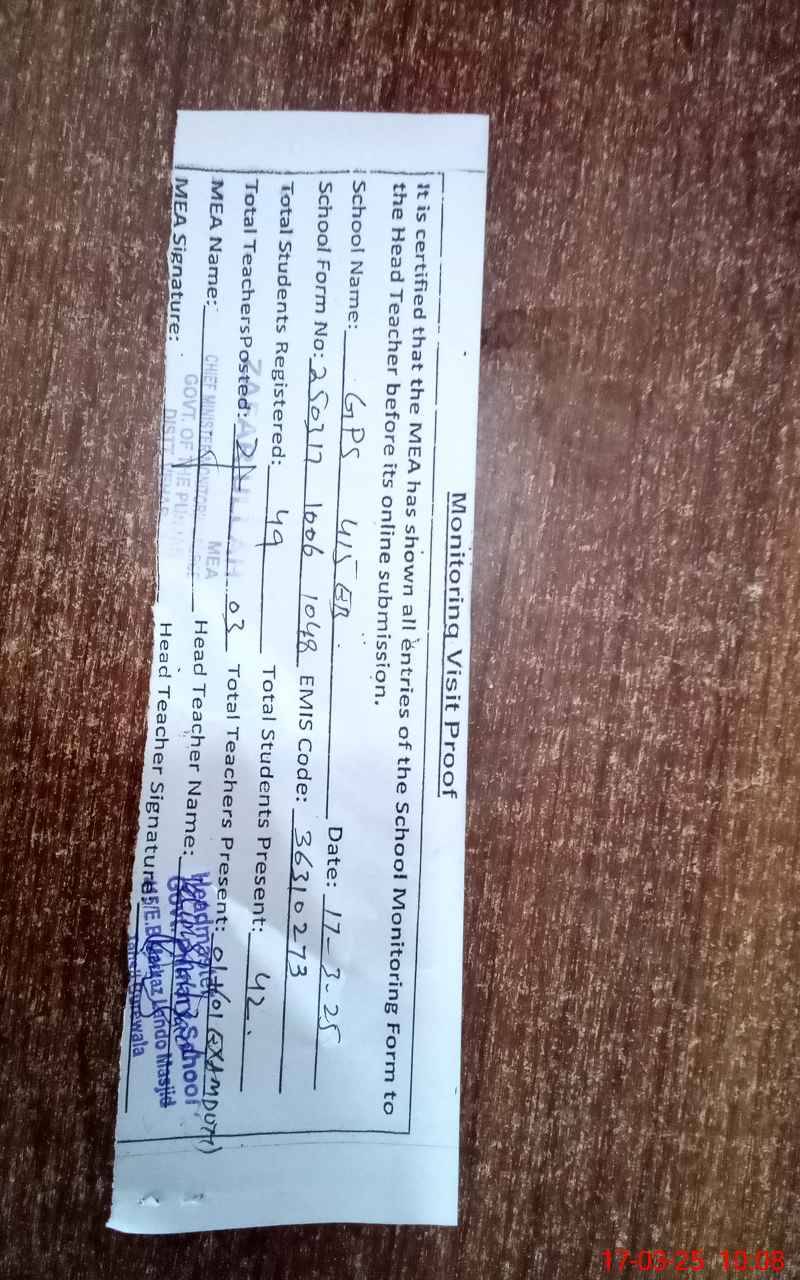 Monitoring Visit Proof
It is certified that the MEA has shown all entries of the School Monitoring Form to
the Head Teacher before its online submission.
School Name: GPS 415 EB. Date: 17-3-25
School Form No: 250317 1006 1048 EMIS Code: 36310273
Total Students Registered: 49 Total Students Present: 42.
Total TeachersPosted: 03 Total Teachers Present: 01+01 (EXAM DUTY)
MEA Name: Head Teacher Name:
MEA Signature: Head Teacher Signature:
ZAFAR ULLAH
MEA
CHIEF MINISTER MONITORING FORCE
GOVT. OF THE PUNJAB
DISTT. VEHARI
Headmaster
Govt. School
415/E.B Markaz Lando Masjid
Burewala
17-03-25 10:08